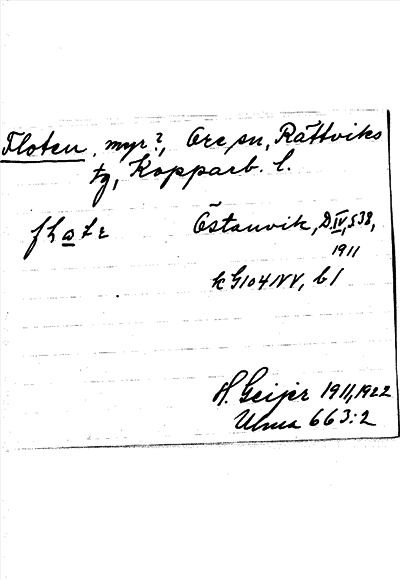 Floten, myr?, Ore sn, Rättviks
tg, Kopparb. l.
Östanvik, D.IV, s 38,
1911
kG104NV, b1
H. Geijer 1911, 1922
Ulma 663:2